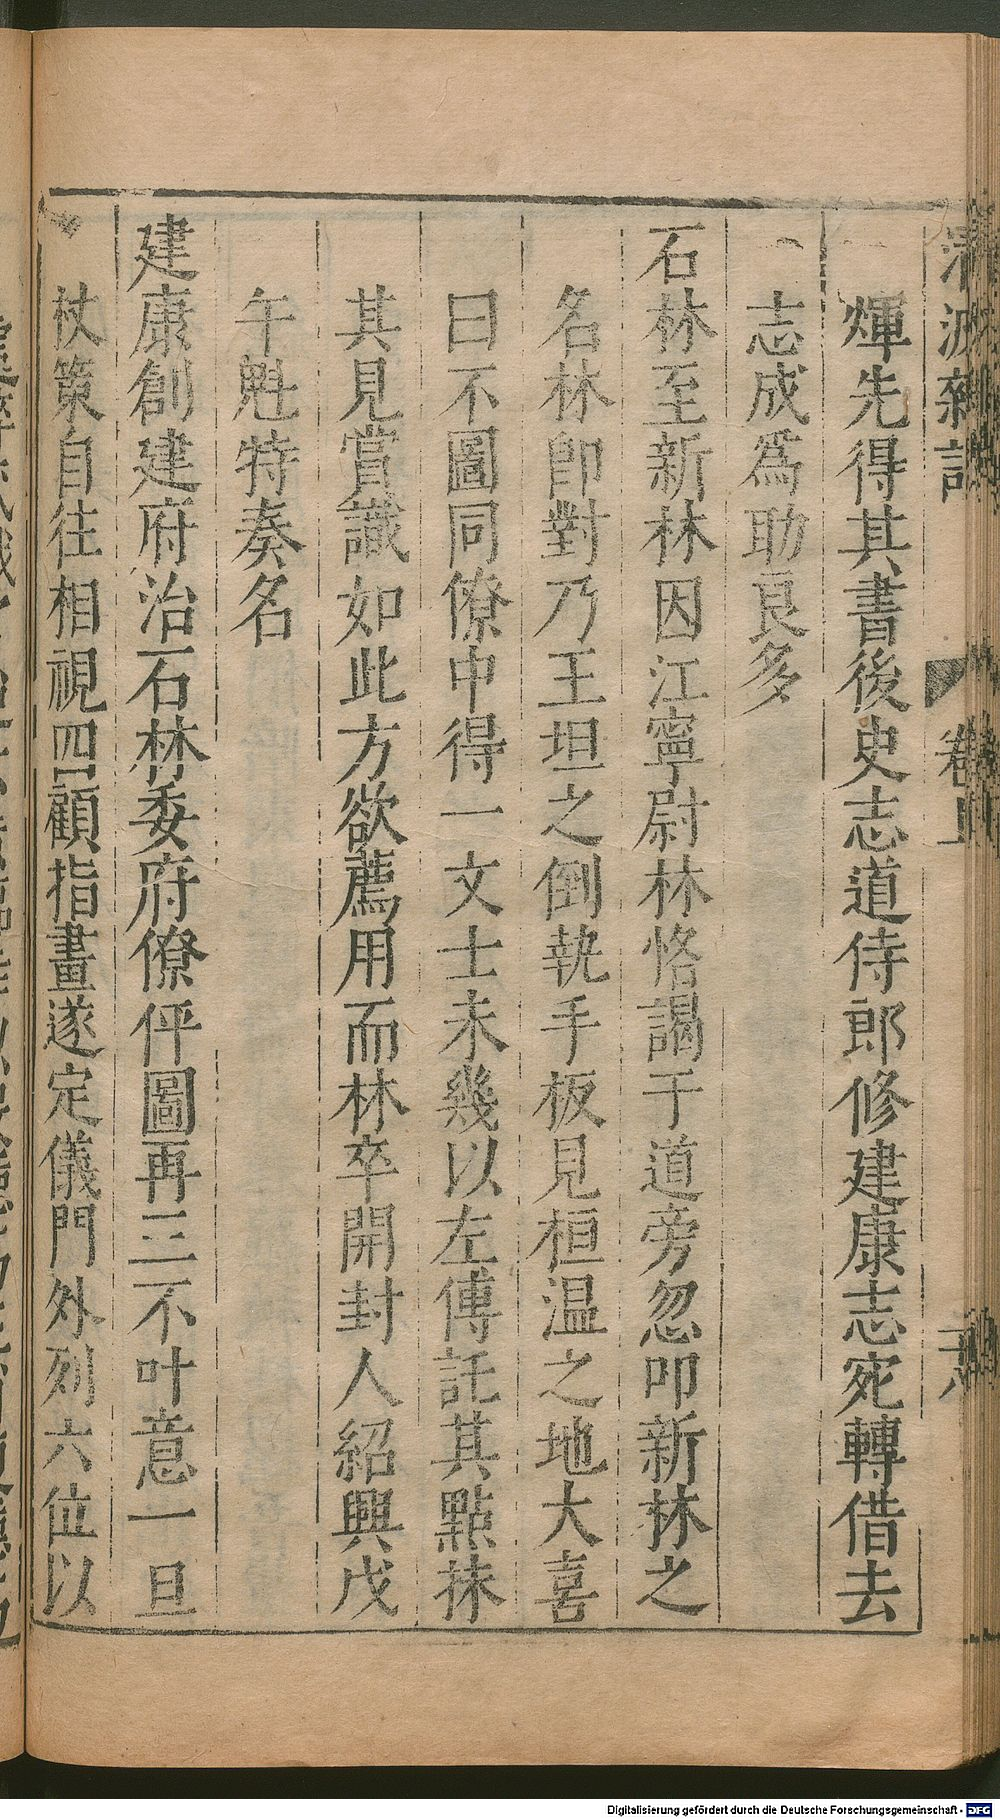 清波雜記 卷上
煇先得其書後史志道侍郎修建康志宛轉借去
志成爲助良多
石林至新林因江寧尉林恪謁于道旁忽叩新林之
名林卽對乃王坦之倒執手板見桓温之地大喜
曰不圖同僚中得一文士未幾以左傳託其點抹
其見賞識如此方欲薦用而林卒開封人紹興戊
午魁特奏名
建康創建府治石林委府僚伻圖再三不叶意一旦
杖策自往相視四顧指畫遂定儀門外列六位以
Digitalisierung gefördert durch die Deutsche Forschungsgemeinschaft - DFG